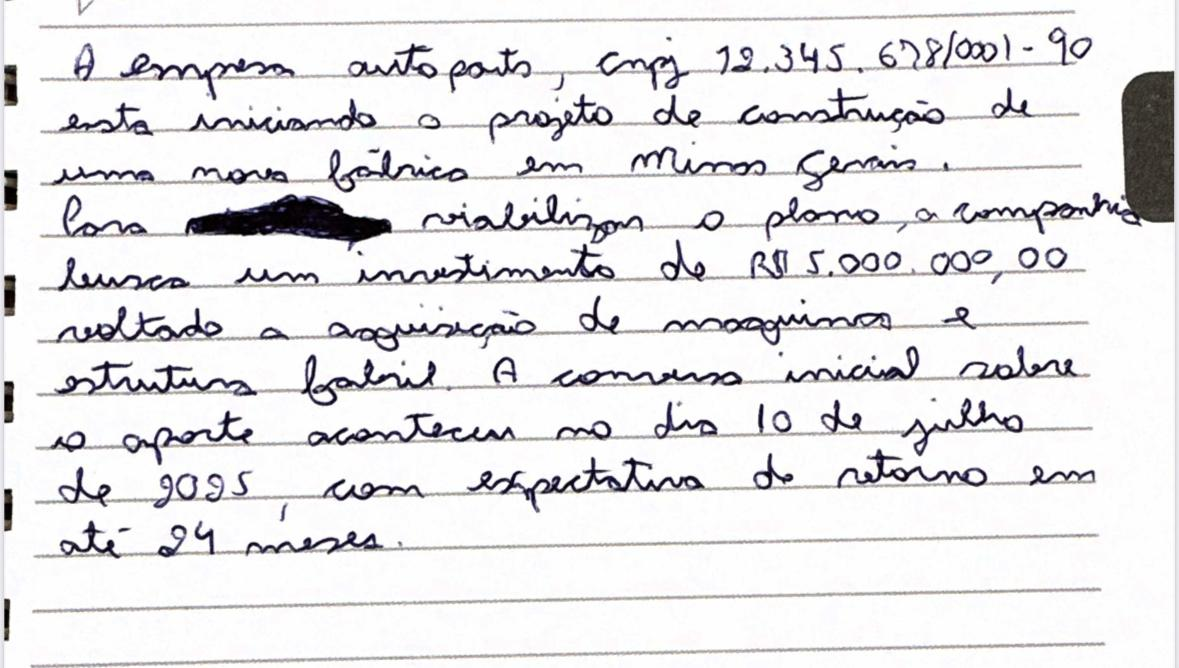 A empresa autoparts, cnpj 12.345.678/0001-90
esta iniciando o projeto de construção de
uma nova fábrica em Minas Gerais.
Para viabilizar o plano, a companhia
busca um investimento de R$ 5.000.000,00
voltado a aquisição de maquinas e
estrutura fabril. A conversa inicial sobre
o aporte aconteceu no dia 10 de julho
de 2025, com expectativa de retorno em
até 24 meses.